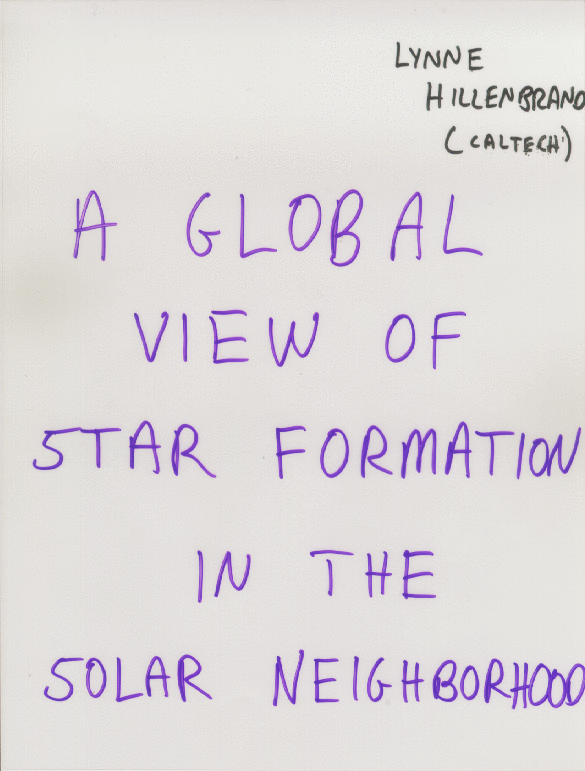 LYNNE
HILLENBRAND
(CALTECH)
A GLOBAL
VIEW OF
STAR FORMATION
IN THE
SOLAR NEIGHBORHOOD